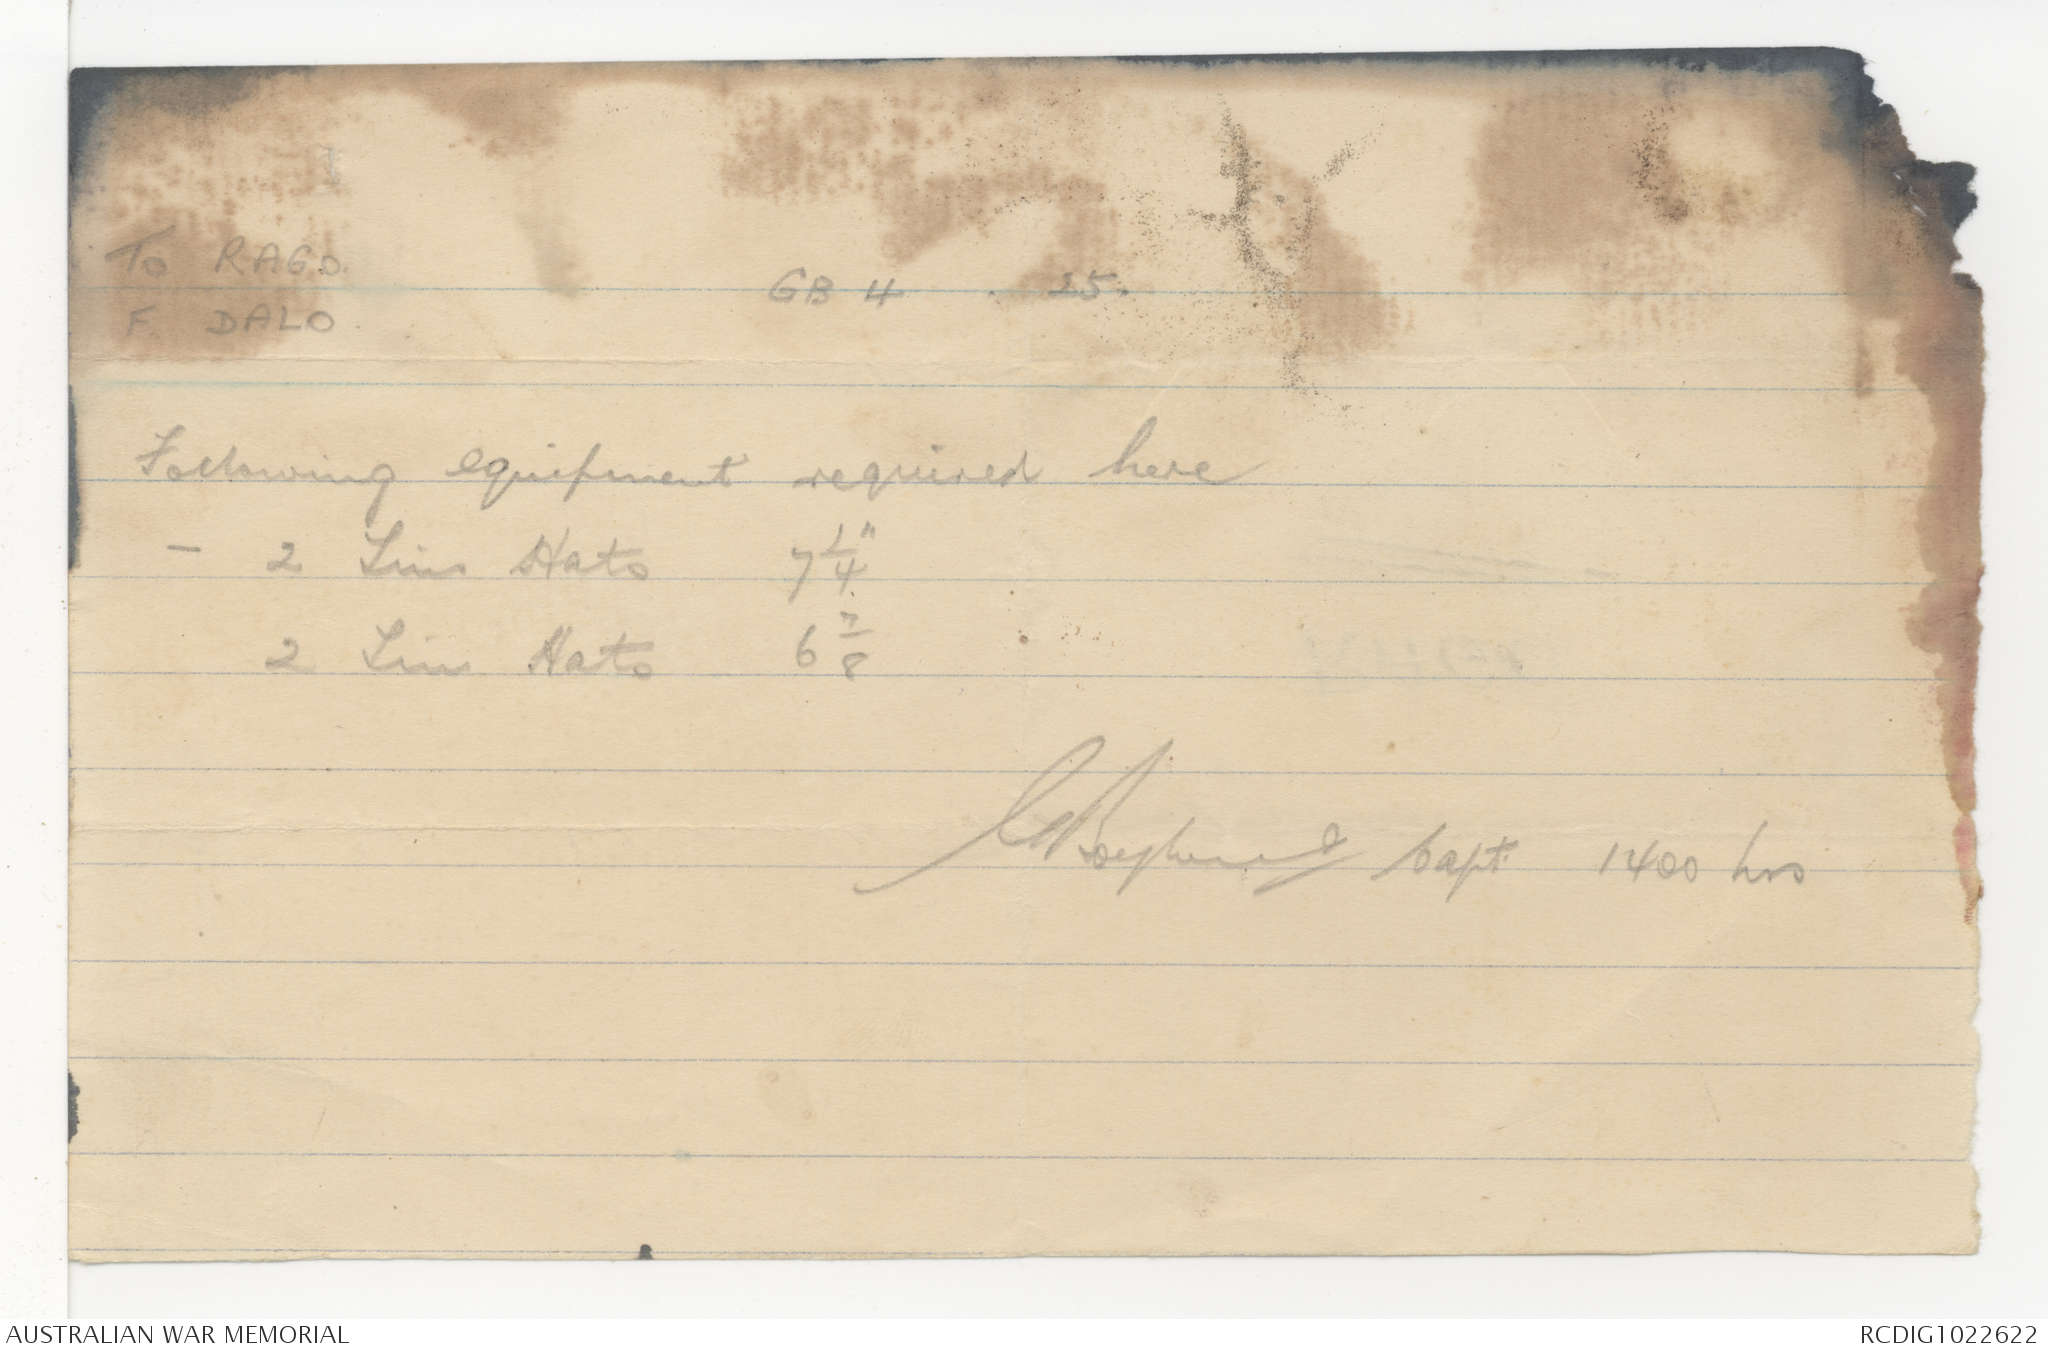 To RAGO.
GB 4 25.
F. DALO
Following equipment required here
- 2 Tin Hats 7 1/4"
2 Tin Hats 6 7/8
Capt. 1400 hrs
AUSTRALIAN WAR MEMORIAL
RCDIG1022622